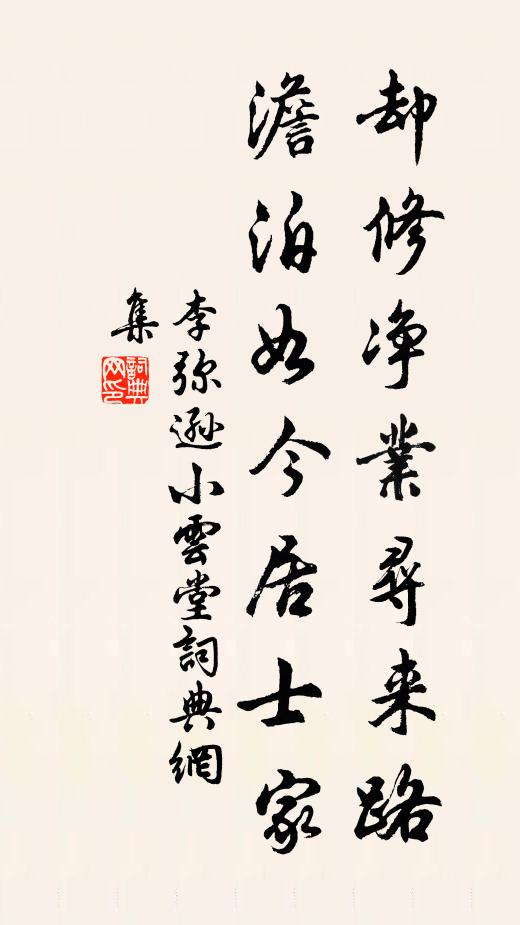 却修净業尋来路
澹泊如今居士家
李弥遜小雲堂詞典網
集
詞典
网印